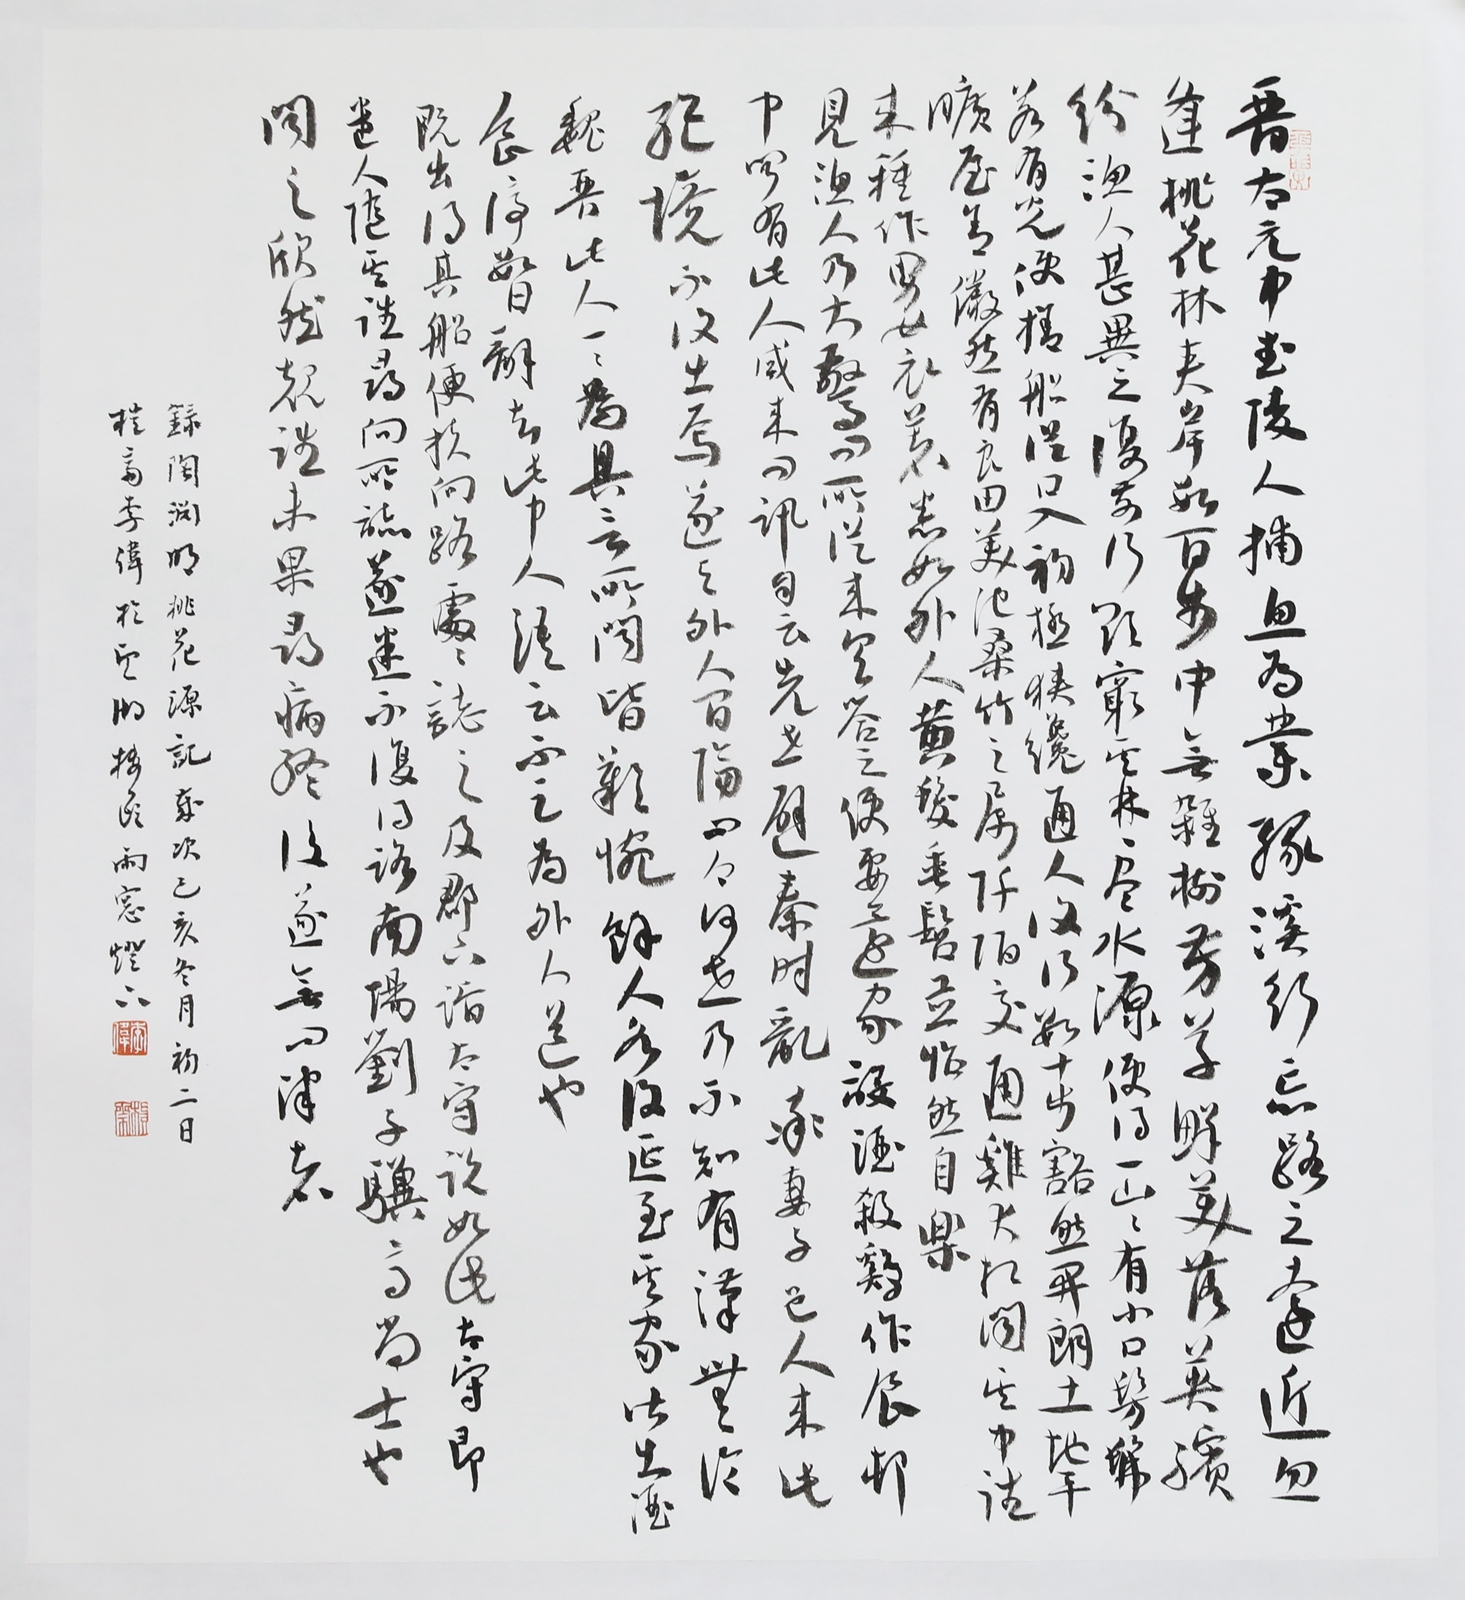 晉太元中武陵人捕魚為業緣溪行忘路之遠近忽
逢桃花林夾岸數百步中無雜樹芳草鮮美落英繽
紛漁人甚異之復前行欲窮其林林尽水源便得一山山有小口髣髴
若有光便捨船從口入初極狹纔通人復行數十步豁然開朗土地平
曠屋舍儼然有良田美池桑竹之屬阡陌交通雞犬相聞其中往
來種作男女衣著悉如外人黃髮垂髫並怡然自樂
見漁人乃大驚問所從來具答之便要還家設酒殺雞作食村
中聞有此人咸來問訊自云先世避秦時亂率妻子邑人來此
絕境不復出焉遂與外人間隔問今何世乃不知有漢無論
魏晉此人一一為具言所聞皆歎惋餘人各復延至其家皆出酒
食停數日辭去此中人語云不足為外人道也
既出得其船便扶向路處處誌之及郡下詣太守說如此太守即
遣人隨其往尋向所誌遂迷不復得路南陽劉子驥高尚士也
聞之欣然規往未果尋病終後遂無問津者
錄陶淵明桃花源記歲次己亥冬月初二日
桂斋李偉於聖湖樓岳雨窓燈下
李偉